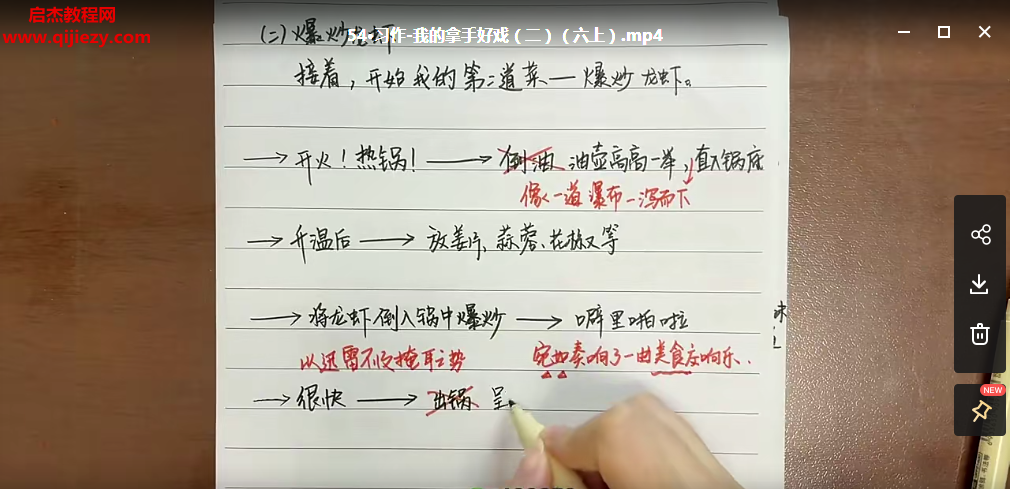 启杰教程网
www.qijiezy.com
54-习作-我的拿手好戏（二）（六上）.mp4
(二)爆炒龙虾
接着，开始我的第二道菜——爆炒龙虾。
→开火！热锅！→倒油 油壶高高一举，直入锅底
像一道瀑布一泻而下
→升温后→放姜片、蒜蓉、花椒等
→将龙虾倒入锅中爆炒→噼里啪啦
味
以迅雷不及掩耳之势 宛如奏响了一曲美食交响乐.
→很快→出锅 呈
NEW